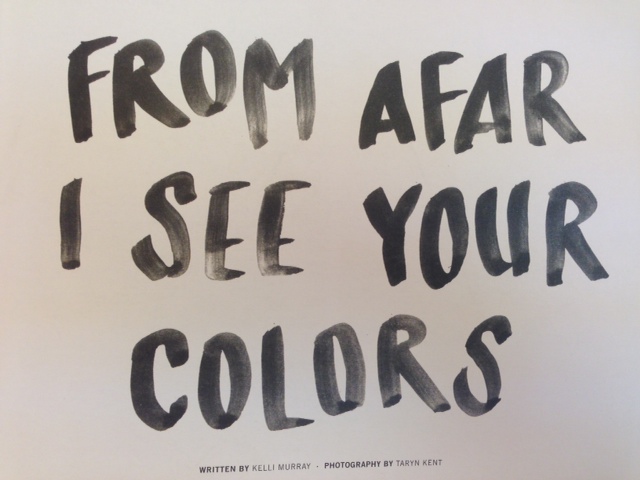 FROM AFAR
I SEE YOUR
COLORS
WRITTEN BY KELLI MURRAY · PHOTOGRAPHY BY TARYN KENT